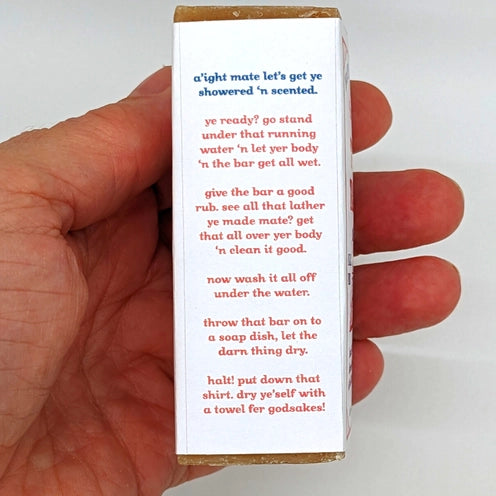 a'ight mate let's get ye
showered 'n scented.
ye ready? go stand
under that running
water 'n let yer body
'n the bar get all wet.
give the bar a good
rub. see all that lather
ye made mate? get
that all over yer body
'n clean it good.
now wash it all off
under the water.
throw that bar on to
a soap dish, let the
darn thing dry.
halt! put down that
shirt. dry ye'self with
a towel fer godsakes!